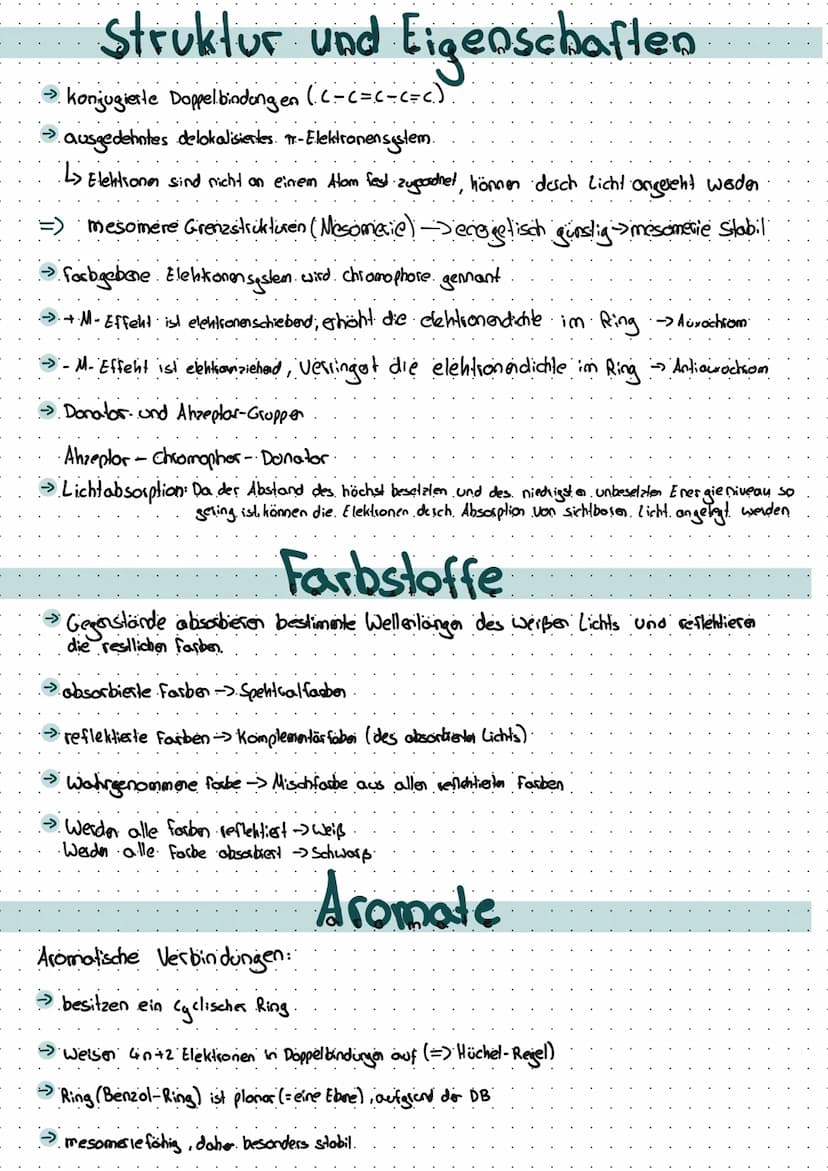 Struktur und Eigenschaften
→ konjugierte Doppelbindungen (C-C=C-C=C)
→ ausgedehntes delokalisiertes π-Elektronensystem
↳ Elektronen sind nicht an einem Atom fest zugeordnet, können durch Licht angeregt werden
=> mesomere Grenzstrukturen (Mesomerie) → energetisch günstig → mesomerie stabil
→ farbgebene Elektronensystem wird chromophore gennant
→ + M-Effekt ist elektronenschiebend, erhöht die elektronendichte im Ring → Auxochrom
→ - M-Effekt ist elektronziehend, verringert die elektronendichte im Ring → Antiauxochrom
→ Donator- und Akzeptor-Gruppen
Akzeptor - Chromophor - Donator
→ Lichtabsorption: Da der Abstand des höchst besetzten und des niedrigsten unbesetzten Energieniveau so
gering ist, können die Elektronen durch Absorption von sichtbaren Licht angeregt werden
Farbstoffe
→ Gegenstände absorbieren bestimmte Wellenlängen des weißen Lichts und reflektieren
die restlichen Farben.
→ absorbierte Farben → Spektralfarben
→ reflektierte Farben → Komplementärfarben (des absorbierten Lichts)
→ Wahrgenommene Farbe → Mischfarbe aus allen reflektierten Farben
→ Werden alle Farben reflektiert → Weiß
Werden alle Farbe absorbiert → Schwarz
Aromate
Aromatische Verbindungen:
→ besitzen ein cyclischer Ring
→ Weisen 4n+2 Elektronen in Doppelbindungen auf (=> Hückel-Regel)
→ Ring (Benzol-Ring) ist planar (= eine Ebne), aufgrund der DB
→ mesomeriefähig, daher besonders stabil.